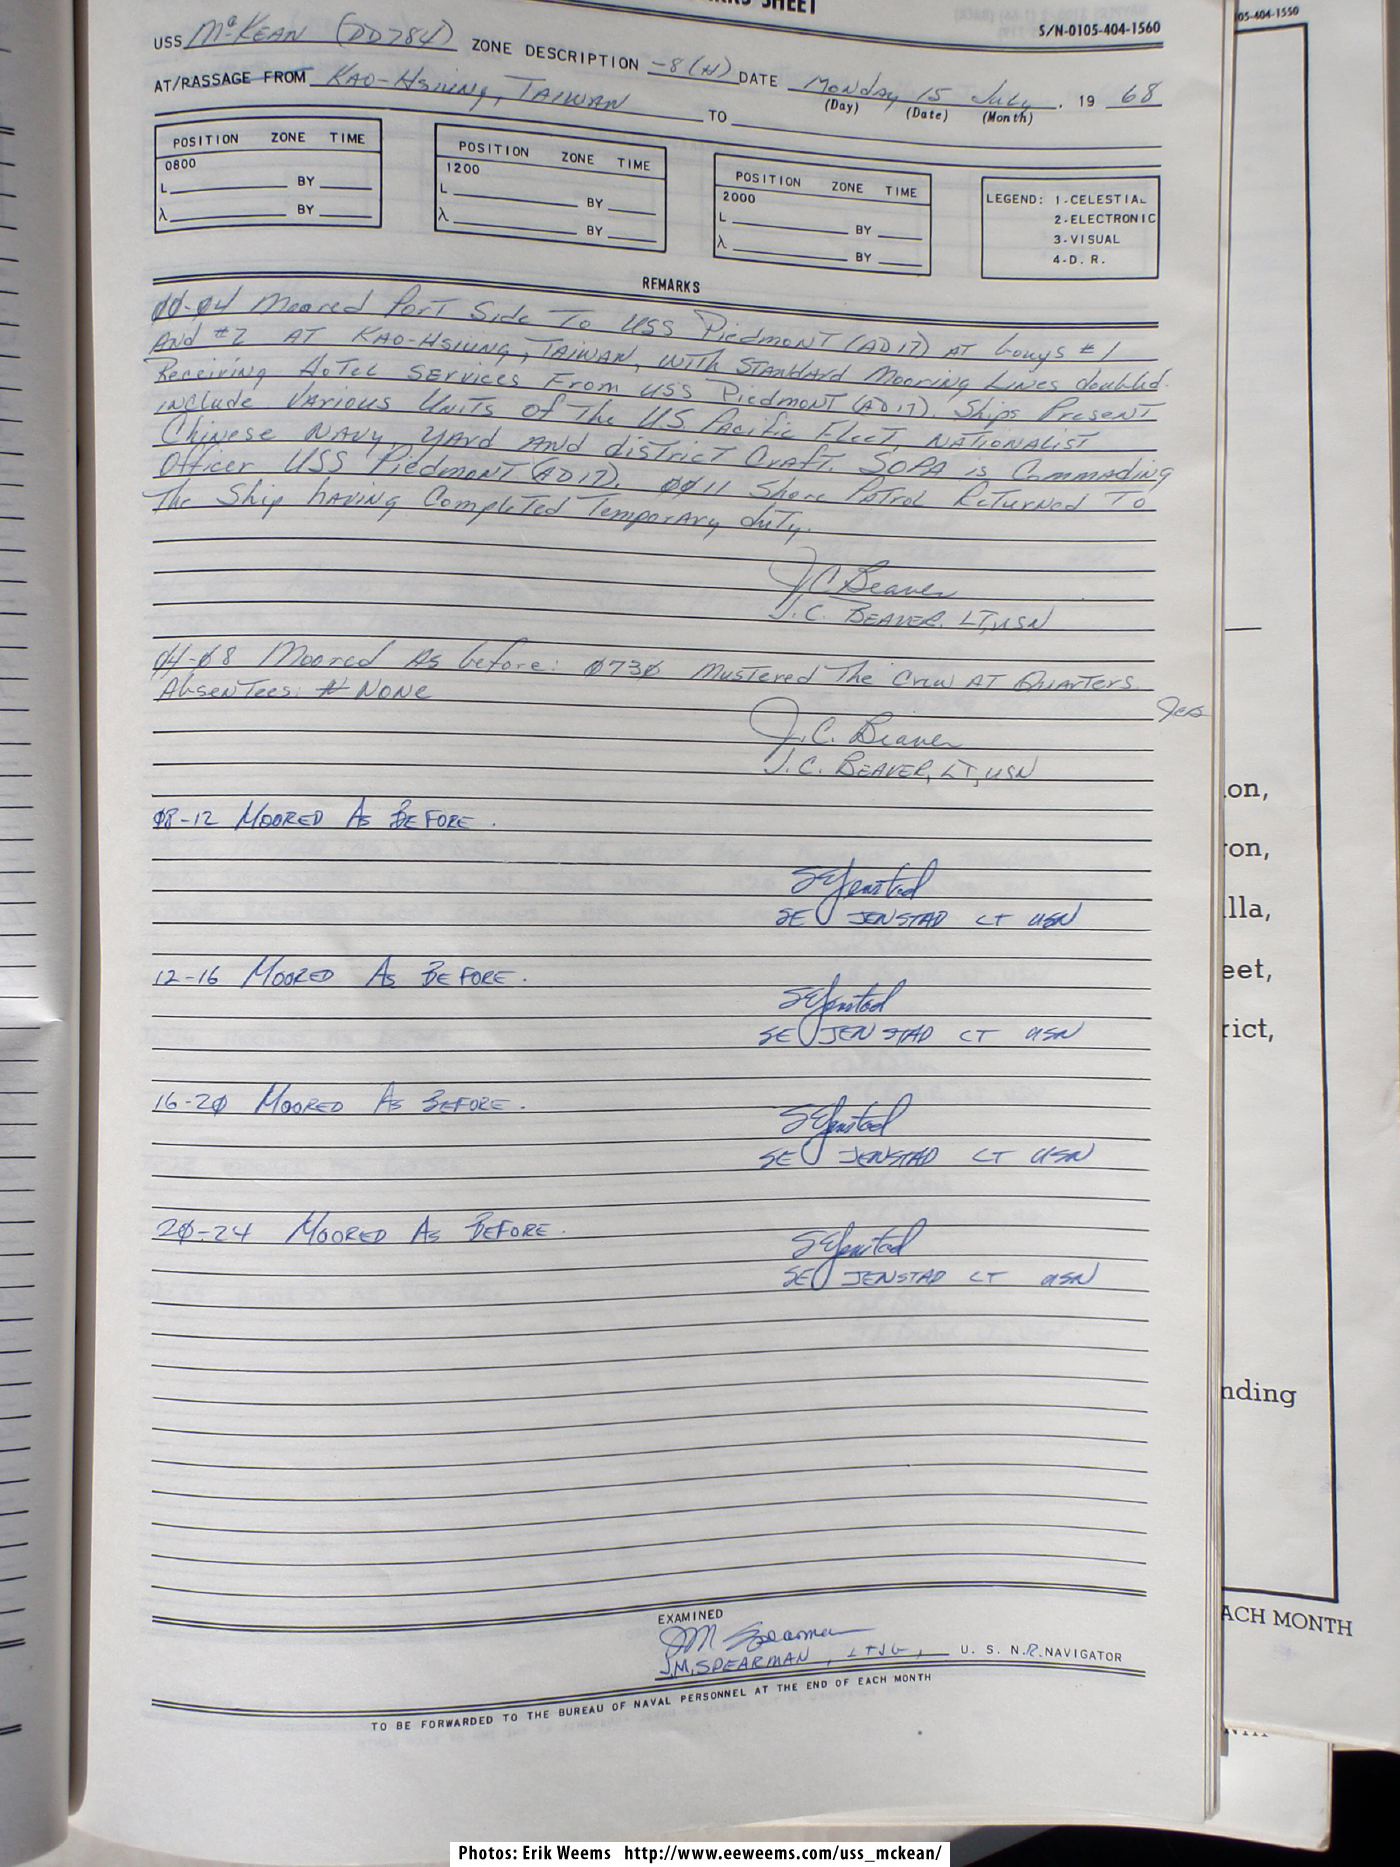 SHEET
S/N-0105-404-1560
USS McKEAN (DD784) ZONE DESCRIPTION -8(H) DATE Monday 15 July, 19 68
(Day) (Date) (Month)
AT/PASSAGE FROM KAO-HSIUNG, TAIWAN TO
POSITION ZONE TIME
0800
L BY
λ BY
POSITION ZONE TIME
1200
L BY
λ BY
POSITION ZONE TIME
2000
L BY
λ BY
LEGEND: 1-CELESTIAL
2-ELECTRONIC
3-VISUAL
4-D. R.
REMARKS
00-04 Moored Port Side To USS Piedmont (AD17) AT bouys #1
And #2 AT KAO-HSIUNG, TAIWAN, with STANdArd Mooring Lines doubled.
Receiving HoTel SERVices From USS Piedmont (AD17). Ships Present
include VArious UniTs of The U.S. Pacific FleeT, NATIONALIST
Chinese NAVy, YArd ANd disTricT CrafT. SOPA is Commading
Officer USS Piedmont (AD17). 0011 Shore PaTrol ReTurned To
The Ship hAving CompleTed TemporAry duTy.
J.C. Beaver
J.C. BEAVER, LT, USN
04-08 Moored As before: 0730 MusTered The Crew AT QuArTers.
AbsenTees: # NONE
JCB
J.C. Beaver
J.C. BEAVER, LT, USN
08-12 MOORED AS BEFORE.
SEJenstad
SE JENSTAD LT USN
12-16 MOORED AS BEFORE.
SEJenstad
SE JENSTAD LT USN
16-20 MOORED AS BEFORE.
SEJenstad
SE JENSTAD LT USN
20-24 MOORED AS BEFORE.
SEJenstad
SE JENSTAD LT USN
EXAMINED
JM Spearman
J.M. SPEARMAN, LTJG, U. S. N.R. NAVIGATOR
TO BE FORWARDED TO THE BUREAU OF NAVAL PERSONNEL AT THE END OF EACH MONTH
05-404-1550
on,
ron,
lla,
eet,
rict,
nding
ACH MONTH
Photos: Erik Weems http://www.eeweems.com/uss_mckean/